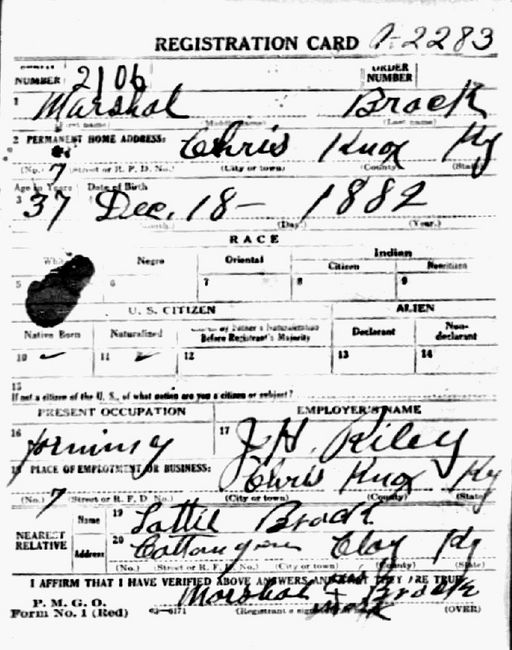 REGISTRATION CARD A-2283
SERIAL NUMBER 2106 ORDER NUMBER
1 Marshal Brock
(First name) (Middle name) (Last name)
2 PERMANENT HOME ADDRESS: Chris Knox Ky
(No.) (Street or R. F. D. No.) (City or town) (County) (State)
Age in Years Date of Birth
3 37 Dec. 18 - 1882
(Month.) (Day.) (Year.)
RACE
White Negro Oriental Indian
Citizen Noncitizen
5 6 7 8 9
U. S. CITIZEN ALIEN
Native Born Naturalized Citizen by Father's Naturalization Before Registrant's Majority Declarant Non-declarant
10 11 12 13 14
15
If not a citizen of the U. S., of what nation are you a citizen or subject?
PRESENT OCCUPATION EMPLOYER'S NAME
16 farming 17 J H. Riley
18 PLACE OF EMPLOYMENT OR BUSINESS: Chris Knox Ky
(No.) (Street or R. F. D. No.) (City or town) (County) (State)
NEAREST RELATIVE Name 19 Lottie Brock
Address 20 Clay Ky
(No.) (Street or R. F. D. No.) (City or town) (County) (State)
I AFFIRM THAT I HAVE VERIFIED ABOVE ANSWERS AND THAT THEY ARE TRUE
P. M. G. O.
Form No. 1 (Red) Marshal x Brock
mark
(OVER)